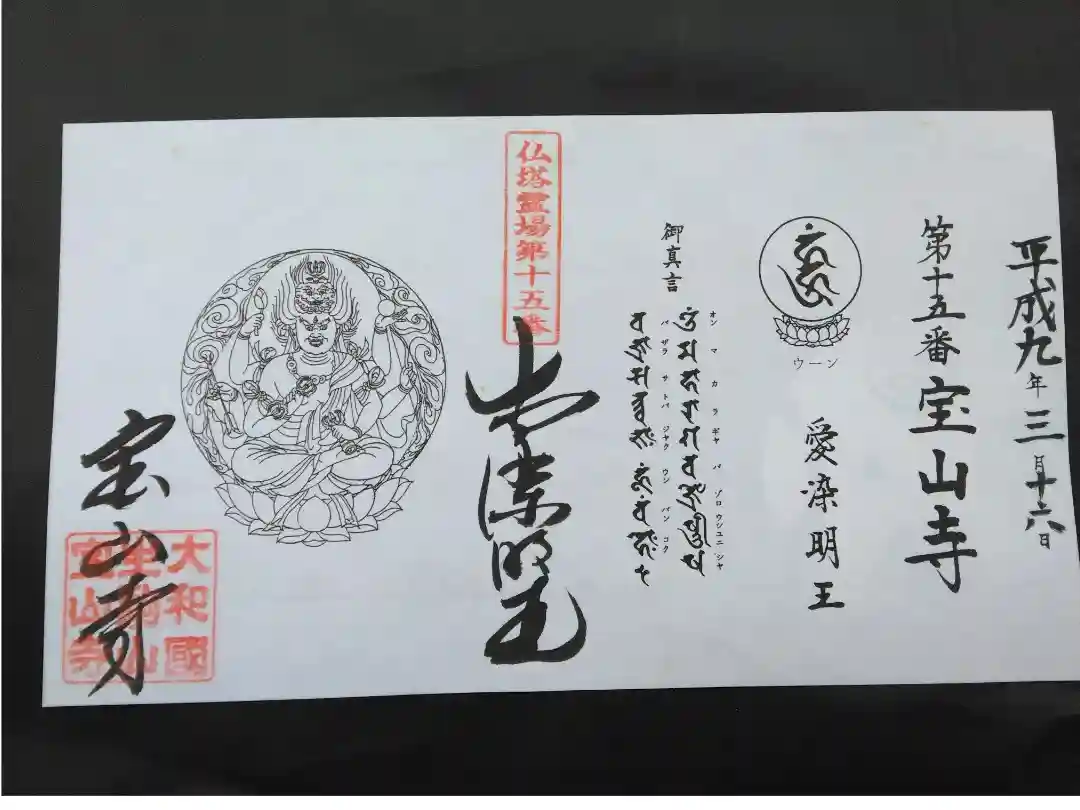 平成九年三月十六日
第十五番宝山寺
ウーン
愛染明王
御真言
オン マ カ ラ ギヤ バ ゾロウシユニ シヤ
バ ザラ サ トバ ジヤク ウン バン コク
仏塔霊場第十五番
愛染明王
宝山寺
大和國
生駒山
宝山寺